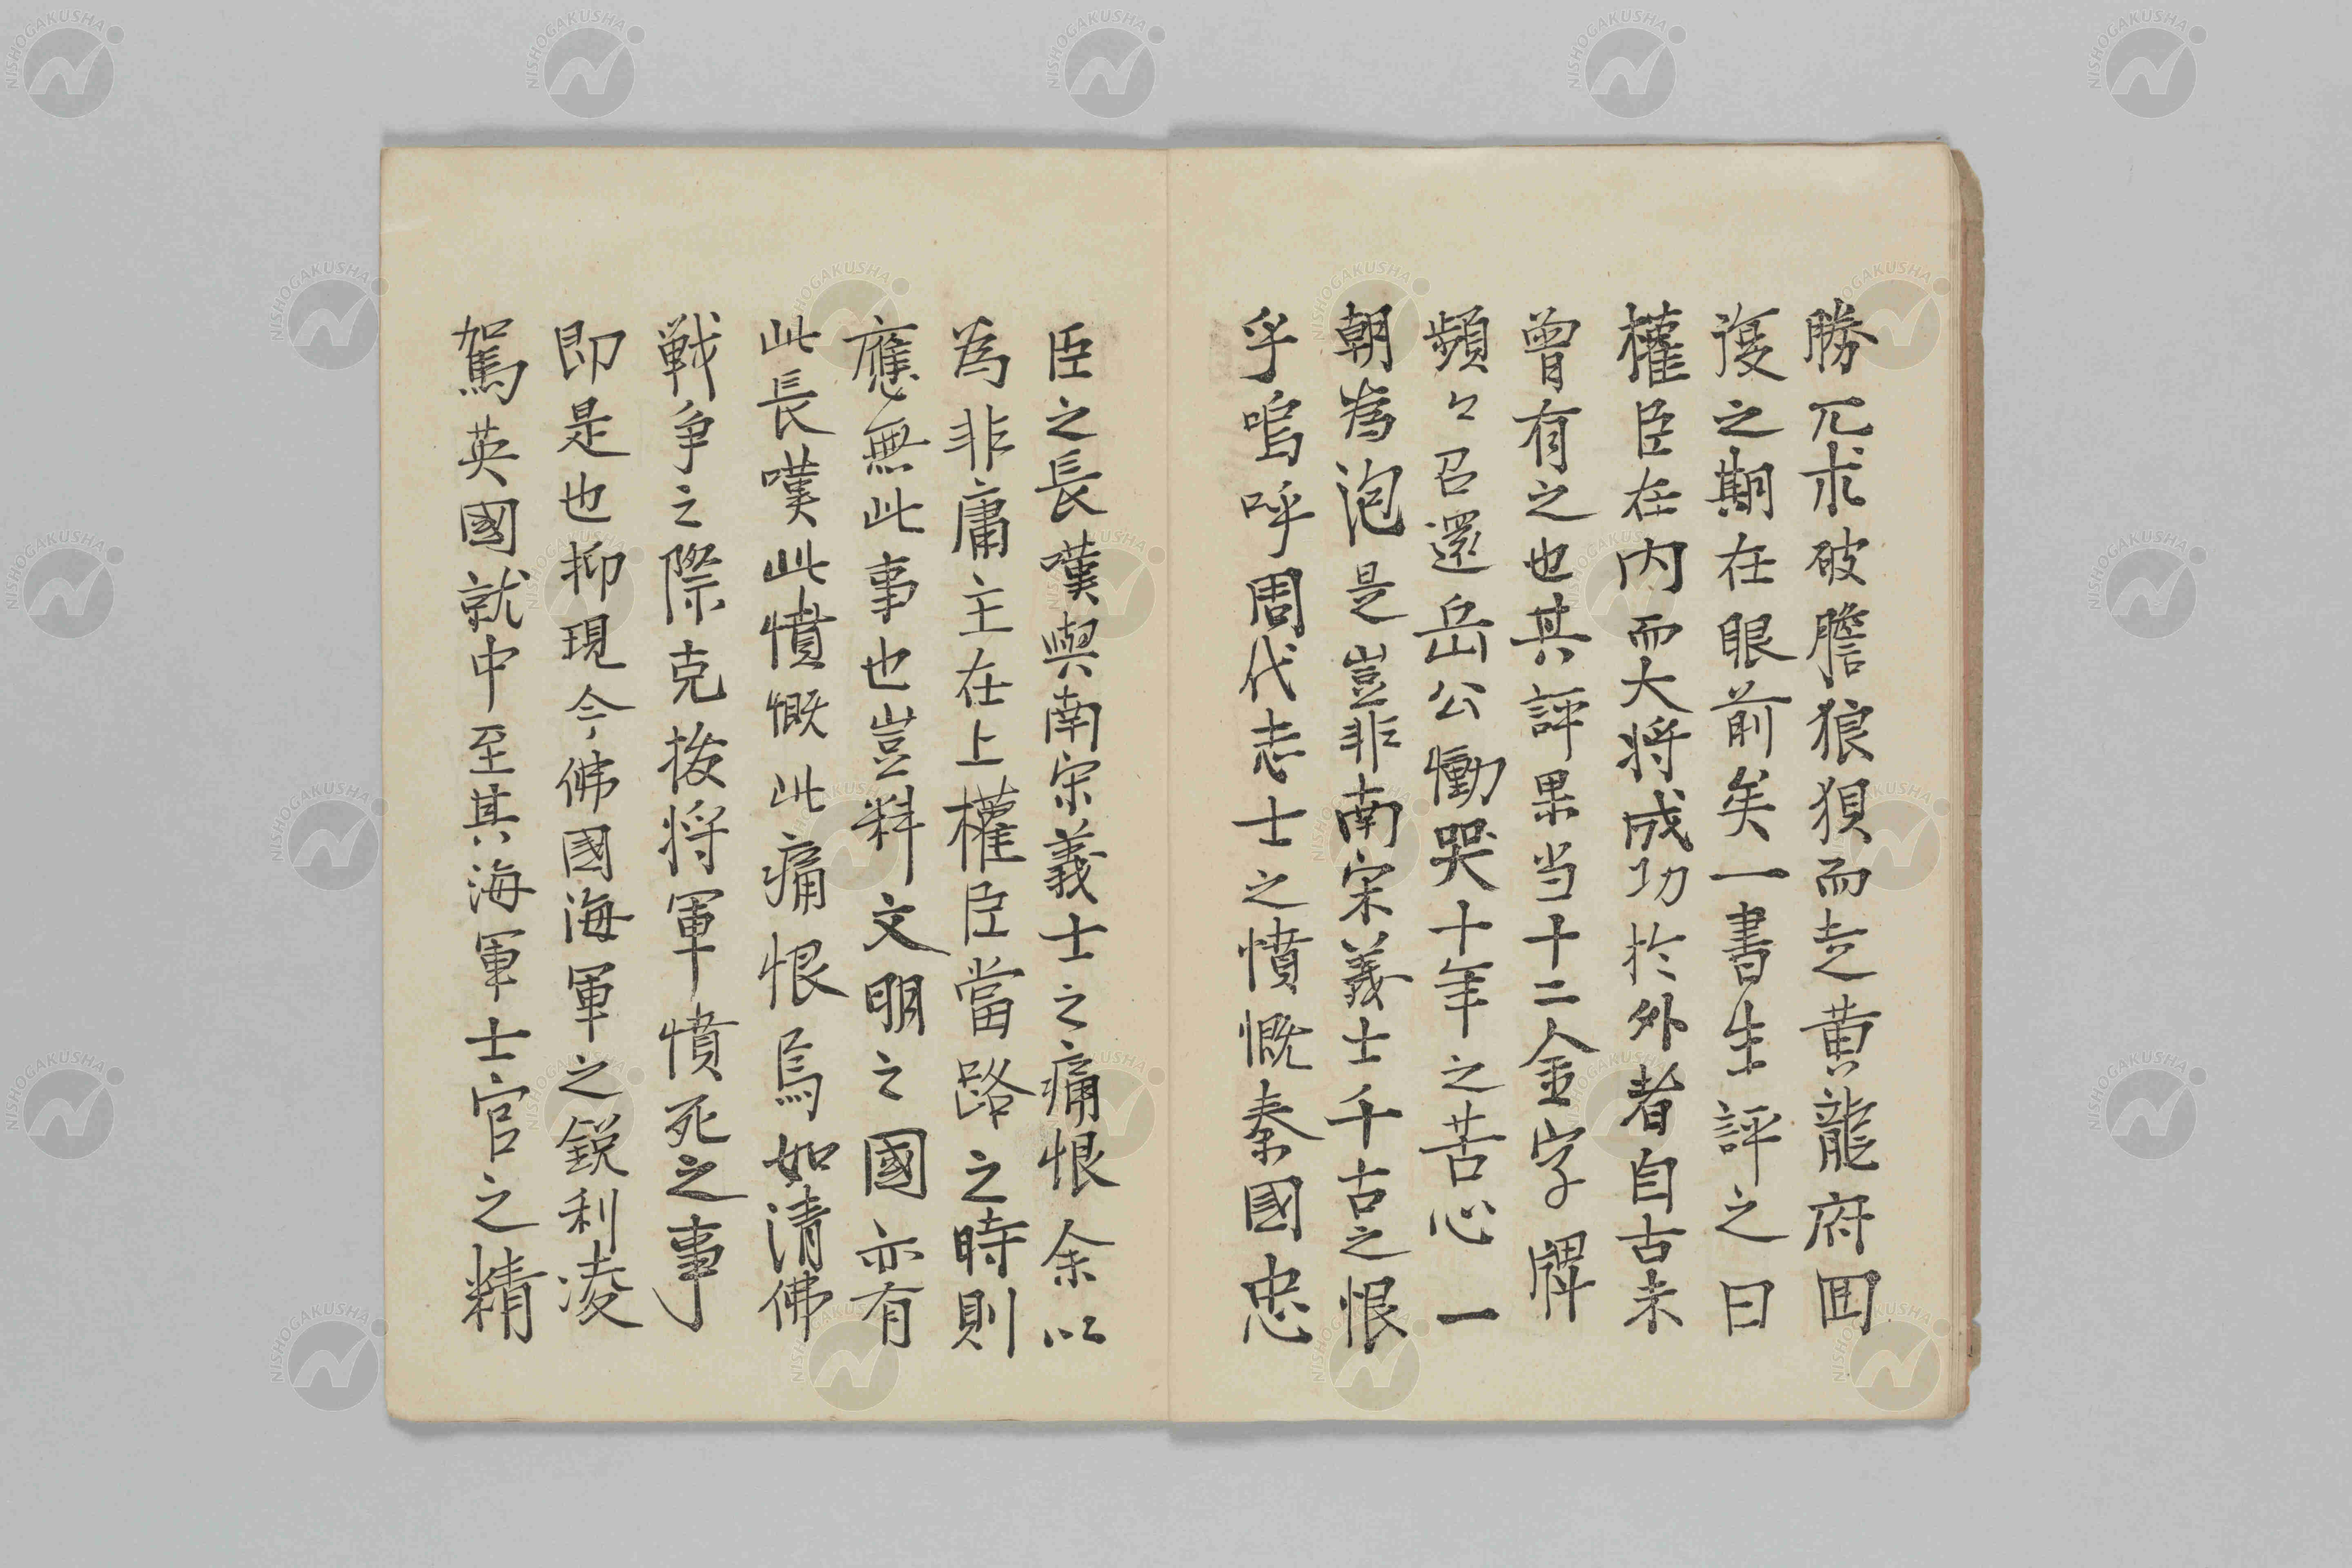 勝兀朮破膽狼狽而走黄龍府囬
復之期在眼前矣一書生評之曰
權臣在内而大将成功於外者自古未
曽有之也其評果当十二金字牌
頻々召還岳公慟哭十年之苦心一
朝為泡是豈非南宋義士千古之恨
乎嗚呼周代志士之憤慨秦國忠
臣之長嘆與南宋義士之痛恨余以
為非庸主在上權臣當路之時則
應無此事也豈料文明之國亦有
此長嘆此憤慨此痛恨焉如清佛
戦争之際克拔将軍憤死之事
即是也抑現今佛國海軍之鋭利凌
駕英國就中至其海軍士官之精
NISHOGAKUSHA